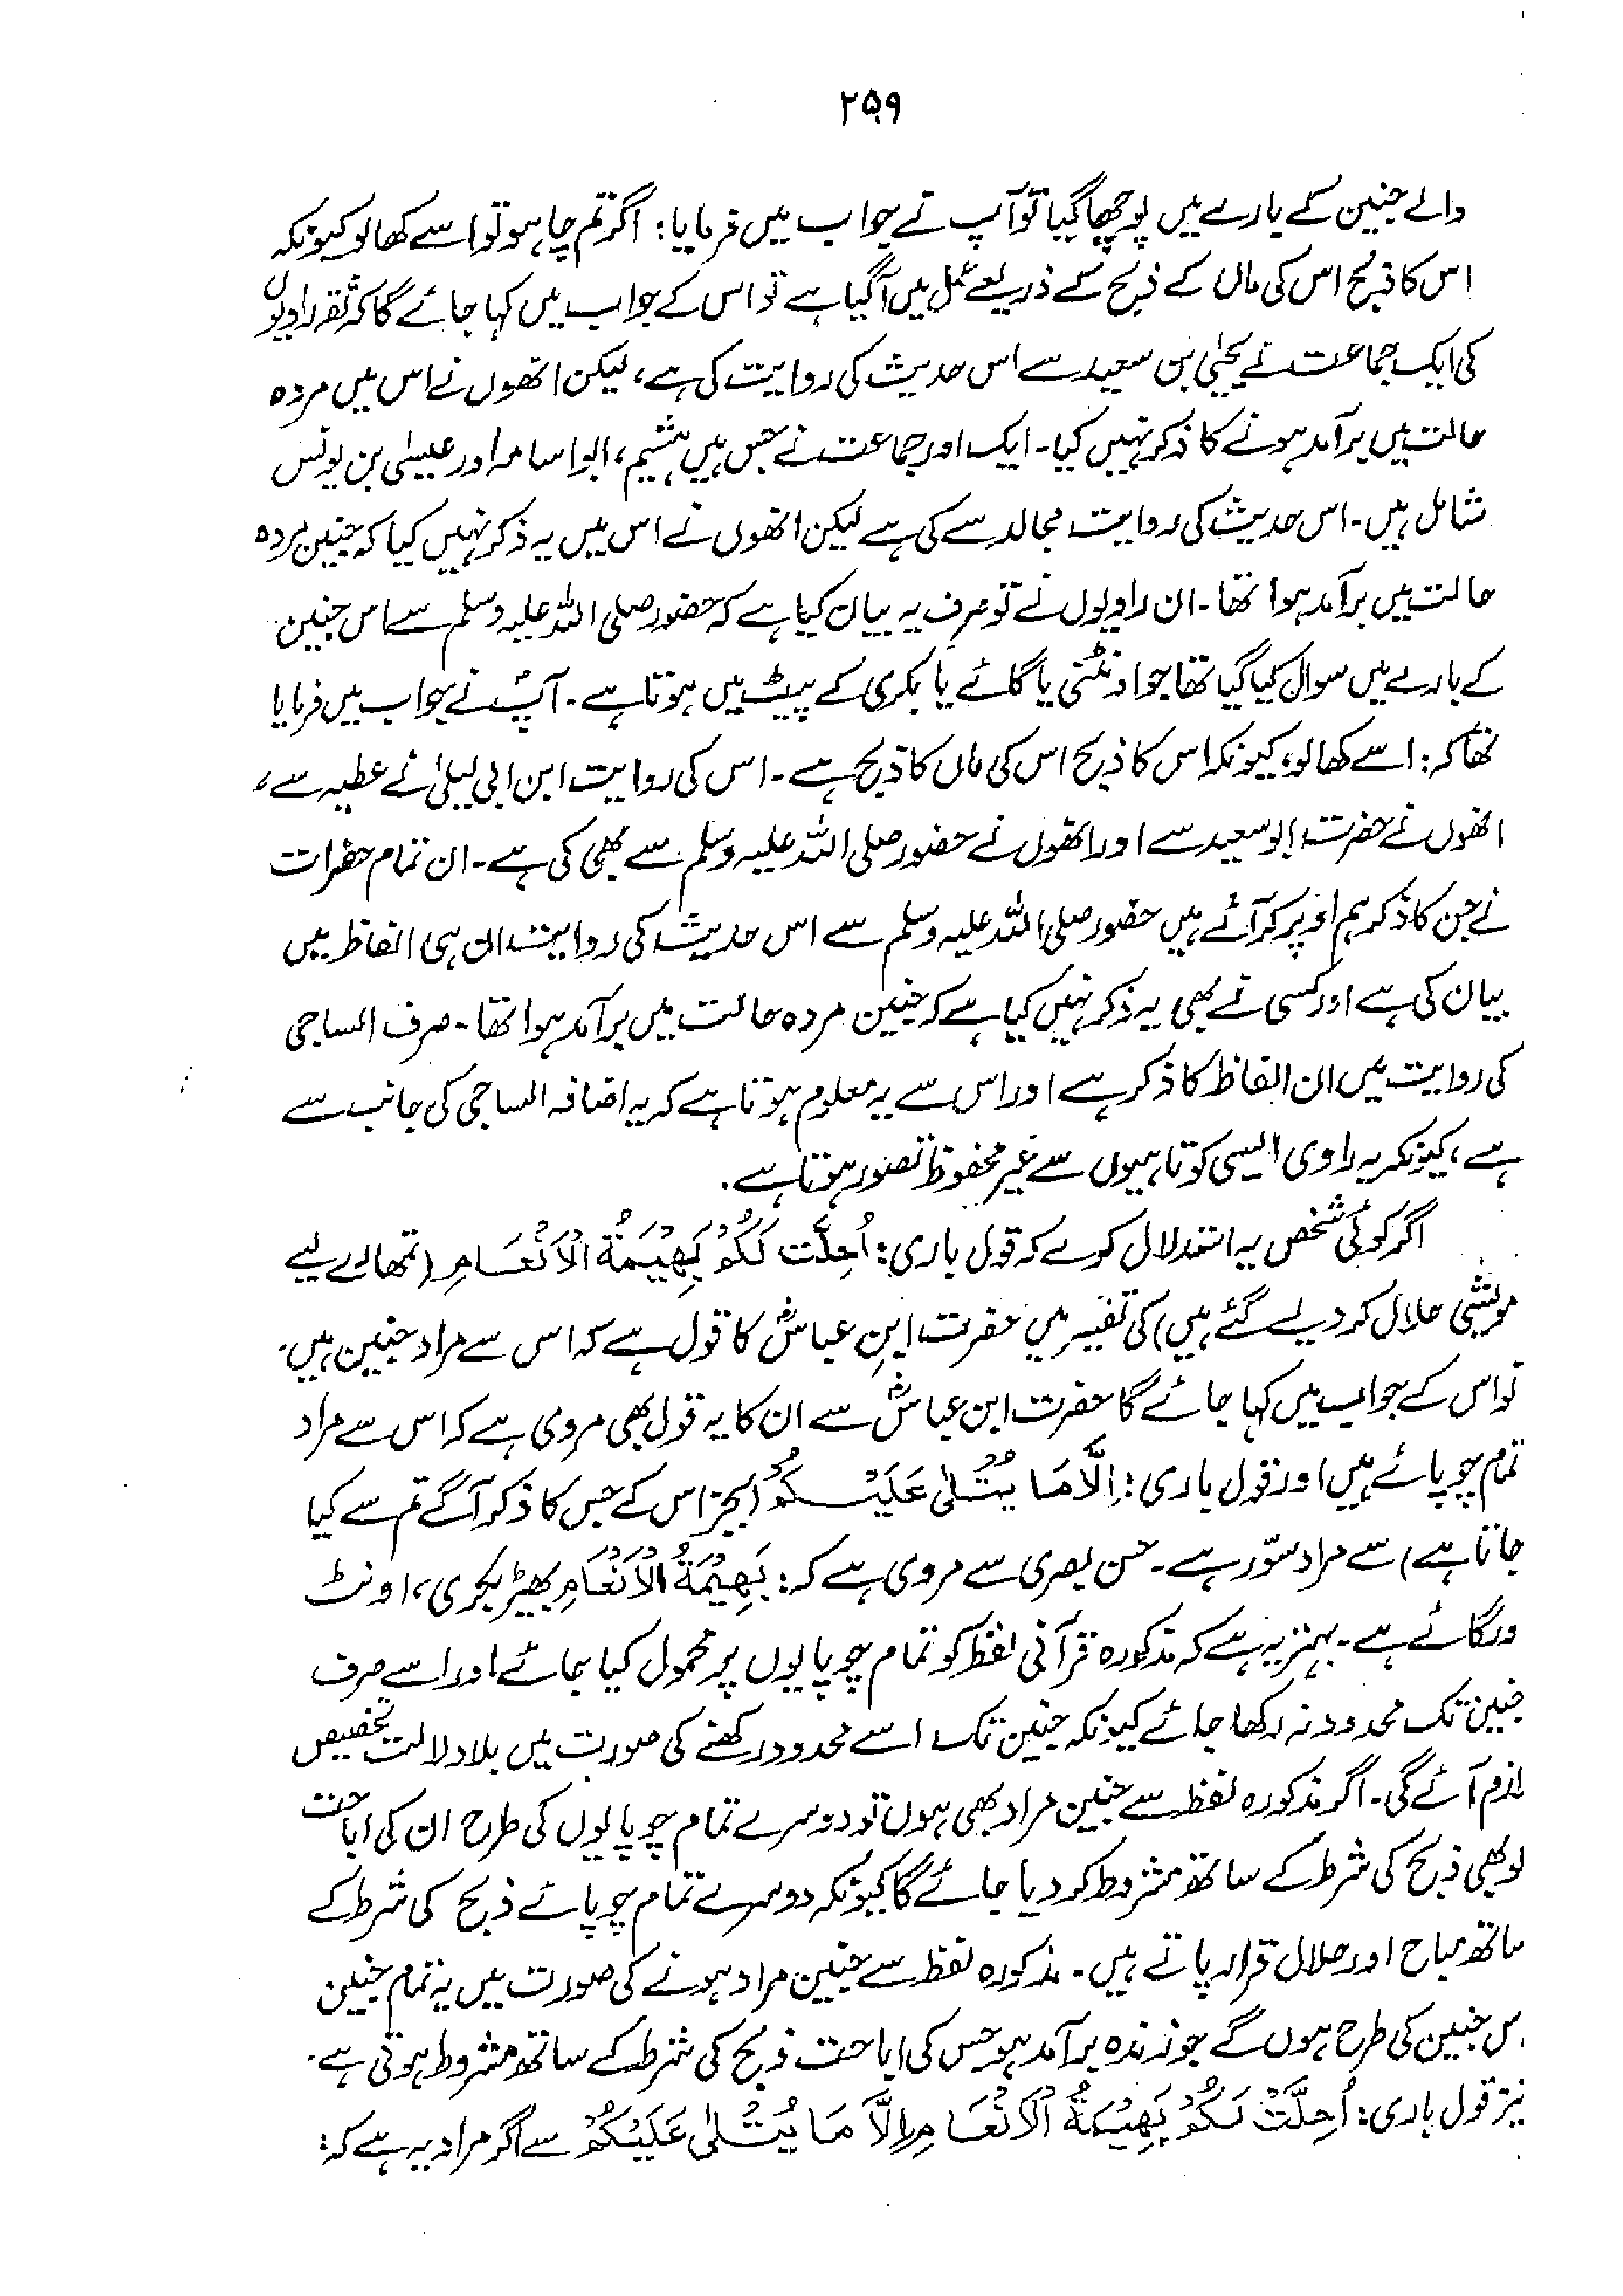 ۲۵۹
والے جنین کے بارے میں پوچھا گیا تو آپ نے جواب میں فرمایا: اگر تم چاہو تو اسے کھالو کیونکہ
اس کا ذبح اس کی ماں کے ذبح کے ذریعے عمل میں آگیا ہے تو اس کے جواب میں کہا جائے گا کہ ثقہ راویوں
کی ایک جماعت نے یحییٰ بن سعید سے اس حدیث کی روایت کی ہے، لیکن انھوں نے اس میں مردہ
حالت میں برآمد ہونے کا ذکر نہیں کیا۔ ایک اور جماعت نے جس میں ہشیم، ابواسامہ اور عیسیٰ بن یونس
شامل ہیں۔ اس حدیث کی روایت مجالد سے کی ہے لیکن انھوں نے اس میں یہ ذکر نہیں کیا کہ جنین مردہ
حالت میں برآمد ہوا تھا۔ ان راویوں نے تو صرف یہ بیان کیا ہے کہ حضور صلی اللہ علیہ وسلم سے اس جنین
کے بارے میں سوال کیا گیا تھا جو اونٹنی یا گائے یا بکری کے پیٹ میں ہوتا ہے۔ آپؐ نے جواب میں فرمایا
تھا کہ: اسے کھالو، کیونکہ اس کا ذبح اس کی ماں کا ذبح ہے۔ اس کی روایت ابن ابی لیلیٰ نے عطیہ سے،
انھوں نے حضرت ابوسعید سے اور انھوں نے حضور صلی اللہ علیہ وسلم سے بھی کی ہے۔ ان تمام حضرات
نے جن کا ذکر ہم اوپر کر آئے ہیں حضور صلی اللہ علیہ وسلم سے اس حدیث کی روایت ان ہی الفاظ میں
بیان کی ہے اور کسی نے بھی یہ ذکر نہیں کیا ہے کہ جنین مردہ حالت میں برآمد ہوا تھا۔ صرف الساجی
کی روایت میں ان الفاظ کا ذکر ہے اور اس سے یہ معلوم ہوتا ہے کہ یہ اضافہ الساجی کی جانب سے
ہے، کیونکہ یہ راوی ایسی کوتاہیوں سے غیر محفوظ تصور ہوتا ہے۔
اگر کوئی شخص یہ استدلال کرے کہ قول باری: اُحِلَّتْ لَكُمْ بَهِيْمَةُ الْاَنْعَامِ (تمھارے لیے
مویشی حلال کر دیے گئے ہیں) کی تفسیر میں حضرت ابنِ عباسؓ کا قول ہے کہ اس سے مراد جنین ہیں۔
تو اس کے جواب میں کہا جائے گا حضرت ابن عباسؓ سے ان کا یہ قول بھی مروی ہے کہ اس سے مراد
تمام چوپائے ہیں اور قول باری: اِلَّا مَا يُتْلٰى عَلَيْكُمْ (بجز اس کے جس کا ذکر آگے تم سے کیا
جاتا ہے) سے مراد سوّر ہے۔ حسن بصری سے مروی ہے کہ: بَهِيْمَةُ الْاَنْعَامِ بھیڑ بکری، اونٹ
ور گائے ہے۔ بہتر یہ ہے کہ مذکورہ قرآنی لفظ کو تمام چوپایوں پر محمول کیا جائے اور اسے صرف
جنین تک محدود نہ رکھا جائے کیونکہ جنین تک اسے محدود رکھنے کی صورت میں بلا دلالت تخصیص
لازم آئے گی۔ اگر مذکورہ لفظ سے جنین مراد بھی ہوں تو دوسرے تمام چوپایوں کی طرح ان کی اباحت
کو بھی ذبح کی شرط کے ساتھ مشروط کر دیا جائے گا کیونکہ دوسرے تمام چوپائے ذبح کی شرط کے
ساتھ مباح اور حلال قرار پاتے ہیں۔ مذکورہ لفظ سے جنین مراد ہونے کی صورت میں یہ تمام جنین
س جنین کی طرح ہوں گے جو زندہ برآمد ہو جس کی اباحت ذبح کی شرط کے ساتھ مشروط ہوتی ہے۔
نیز قول باری: اُحِلَّتْ لَكُمْ بَهِيْمَةُ الْاَنْعَامِ اِلَّا مَا يُتْلٰى عَلَيْكُمْ سے اگر مراد یہ ہے کہ: